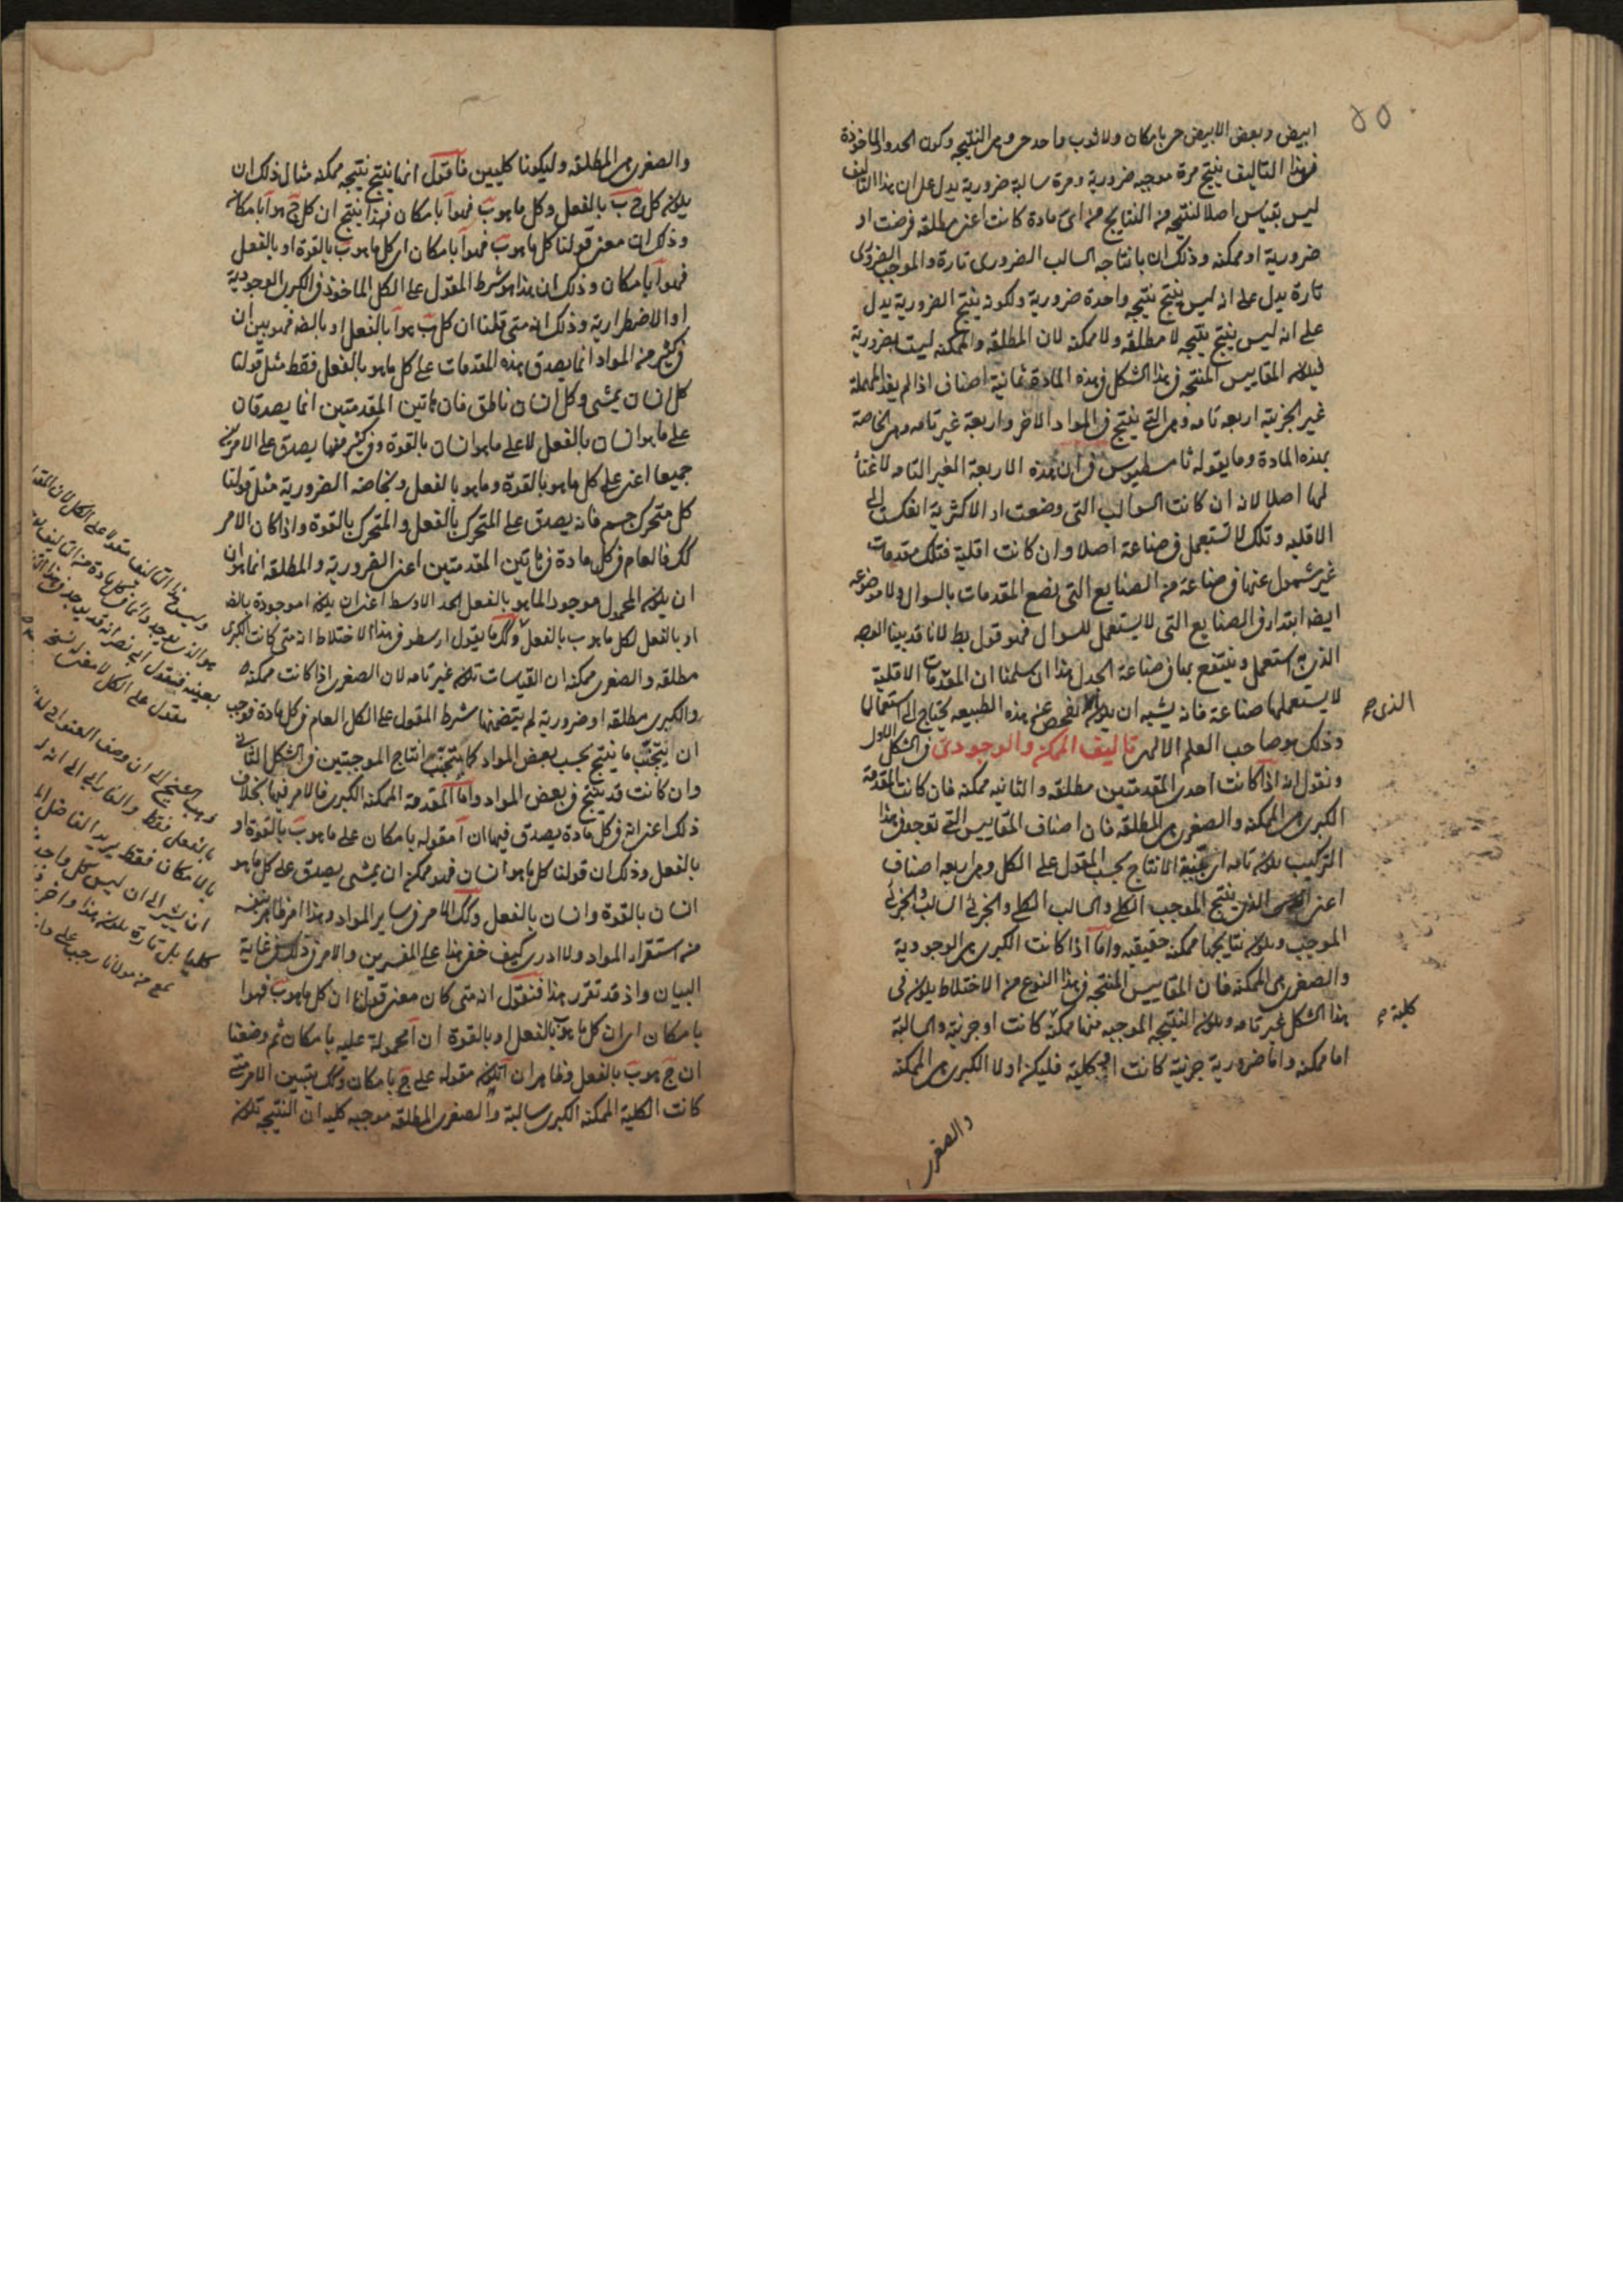 ٥٥
ابيض وبعض الابيض حى بامكان ولا ثوب واحد حى وهى النتيجه وكون الحدود الماخوذة
فى هذا التاليف ينتج مرة موجبه ضرورية ومرة سالبة ضرورية يدل على ان هذا التاليف
ليس بقياس اصلا لنتيجه من النتايج من اى مادة كانت اعنى مطلقه فرضت او
ضرورية او ممكنه وذلك ان بانتاجه السالب الضرورى تارة والموجب الضرورى
تارة يدل على انه ليس ينتج نتيجه واحدة ضرورية ولكونه ينتج الضرورية يدل
على انه ليس ينتج نتيجه لا مطلقه ولا ممكنه لان المطلقه والممكنه ليست بضرورية
فيكون المقاييس المنتجه فى هذا الشكل فى هذه المادة ثمانية اصناف اذا لم يعد المهملة
غير الجزئية اربعه تامه وهى التى ينتج فى المواد الاخر واربعة غير تامه وهى الخاصة
بهذه المادة وما يقوله ثامسطيوس فى ان هذه الاربعة الغير التامه لا غنأ
لها اصلا لانه ان كانت السوالب التى وضعت اد الاكثرية انعكست الى
الاقليه وتلك لا تستعمل فى صناعة اصلا وان كانت اقلية فتلك مقدمات
غير شمول عنها فى صناعة من الصنايع التى تضع المقدمات بالسوال ولا موضوعه
ايضا ابتدا فى الصنايع التى لا يستعمل للسوال فهو قول بط لانا قد بينا الوجه
الذى به يستعمل وينتفع بها فى صناعة الجدل هذا ان سلمنا ان المقدمات الاقلية
لا يستعملها صناعة فانه يشبه ان يكون الفحص عن هذه الطبيعه يحتاج الى استعمالها
الذى
وذلك هو صاحب العلم الالهى تاليف الممكن والوجودى فى الشكل الاول
ونقول انه اذا كانت احدى المقدمتين مطلقه والثانيه ممكنه فان كانت المقدمة
الكبرى هى الممكنه والصغرى هى المطلقه فان اصناف المقاييس التى توجد فى هذا
التركيب يكون تامه اى بينة الانتاج بحسب المقول على الكل وهى اربعه اصناف
اعنى الذى ينتج الموجب الكلى والسالب الكلى والجزئى السالب والجزئى
الموجب ويكون نتايجها ممكنه حقيقيه واما اذا كانت الكبرى هى الوجودية
والصغرى هى الممكنه فان المقاييس المنتجه فى هذا النوع من الاختلاط يكون فى
هذا الشكل غير تامه ويكون النتيجه الموجبه منها ممكنة كانت او جزئية والسالبة
كلية
اما ممكنه واما ضرورية جزئية كانت او كلية فليكن اولا الكبرى هى الممكنه
والصغرى
والصغرى هى المطلقه وليكونا كليين فاقول انها ينتج نتيجه ممكنه مثال ذلك ان
يكون كل ج ب بالفعل وكل ما هو ب فهو آ بامكان فهذا ينتج ان كل ج هو آ بامكان
وذلك ان معنى قولنا كل ما هو ب فهو آ بامكان اى كل ما هو ب بالقوة او بالفعل
فهو آ بامكان وذلك ان هذا هو شرط المقول على الكل الماخوذ فى الكبرى الوجودية
او الاضطرارية وذلك انه متى قلنا ان كل ب هو آ بالفعل او بالضه فهو بين ان
فى كثير من المواد انما يصدق هذه المقدمات على كل ما هو بالفعل فقط مثل قولنا
كل انسان يمشى وكل انسان ناطق فان هاتين المقدمتين انما يصدقان
على ما هو انسان بالفعل لا على ما هو انسان بالقوة وفى كثير منها يصدق على الامرين
جميعا اعنى على كل ما هو بالقوة وما هو بالفعل وبخاصة الضرورية مثل قولنا
كل متحرك جسم فانه يصدق على المتحرك بالفعل والمتحرك بالقوة واذا كان الامر
كك فالعام فى كل مادة فى هاتين المقدمتين اعنى الضرورية والمطلقه انما هو ان
ان يكون المحمول موجودا لما هو بالفعل الحد الاوسط اعنى ان يكون ا موجودة بالضه
او بالفعل لكل ما هو ب بالفعل وكك ما يقول ارسطو فى هذا الاختلاط انه متى كانت الكبرى
مطلقه والصغرى ممكنه ان القياسات تكون غير تامه لان الصغرى اذا كانت ممكنه
والكبرى مطلقه او ضرورية لم يتضمنها شرط المقول على الكل العام فى كل مادة فوجب
ان يتجنب ما ينتج بحسب بعض المواد كما يتجنب انتاج الموجبتين فى الشكل الثانى
وان كانت قد ينتج فى بعض المواد واما المقدمة الممكنه الكبرى فالامر فيها بخلاف
ذلك اعنى انه فى كل مادة يصدق فيها ان آ مقوله بامكان على ما هو ب بالقوة او
بالفعل وذلك ان قولنا كل ما هو انسان فهو ممكن ان يمشى يصدق على كل ما هو
انسان بالقوة وانسان بالفعل وكك الامر فى ساير المواد وهذا امر ظاهر بنفسه
من استقراء المواد ولا ادرى كيف خفى هذا على المفسرين والامر فى ذلك فى غاية
البيان واذ قد تقرر هذا فنقول انه متى كان معنى قولنا ان كل ما هو ب فهو آ
بامكان اى ان كل ما هو ب بالفعل او بالقوة ان آ محمولة عليه بامكان ثم وضعنا
ان ج هو ب بالفعل فظاهر ان آ يكون مقوله على ج بامكان وكك يتبين الامر متى
كانت الكلية الممكنه الكبرى سالبة والصغرى المطلقه موجبه كليه ان النتيجه تكون
مقول على الكل
ذهب الشيخ الى ان وصف العنوانى
بالفعل فقط والفارابى الى انه
بالامكان فقط يريد الفاضل
ان يشير الى ان ليس كل واحد
كليا بل تارة يكون هذا واخرى